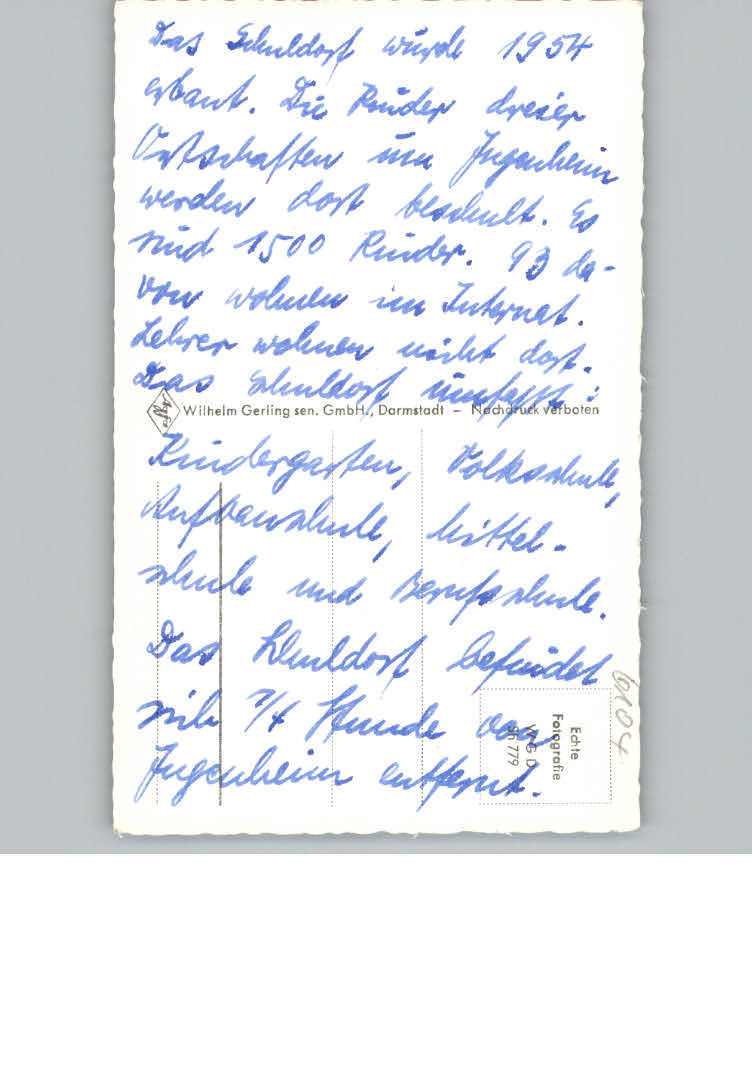 Das Schuldorf wurde 1954
erbaut. Die Kinder dreier
Ortschaften um Jugenheim
werden dort beschult. Es
sind 1500 Kinder. 93 da-
von wohnen im Internat.
Lehrer wohnen nicht dort.
Das Schuldorf umfasst:
Agfa
Wilhelm Gerling sen. GmbH., Darmstadt – Nachdruck verboten
Kindergarten, Volksschule,
Aufbauschule, Mittel-
schule und Berufsschule.
Das Schuldorf befindet
sich 1/4 Stunde von
Jugenheim entfernt.
Echte
Fotografie
W G D
Sh 779
6104